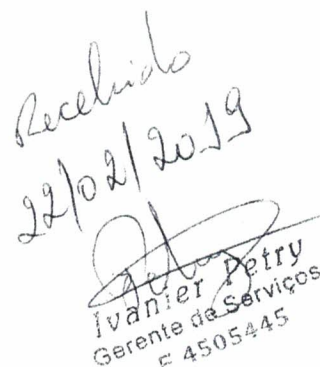 Recebido
22/02/2019
Ivanier Petry
Gerente de Serviços
F 4505445